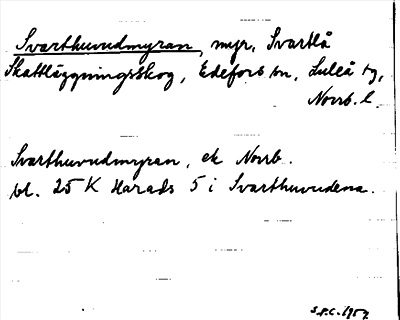 Svarthuvudmyran, myr, Svartlå
Skattläggningsskog, Edefors sn, Luleå tg,
Norrb. l.
Svarthuvudmyran, ek Norrb.
bl. 25 K Harads 5 i Svarthuvudena.
1957